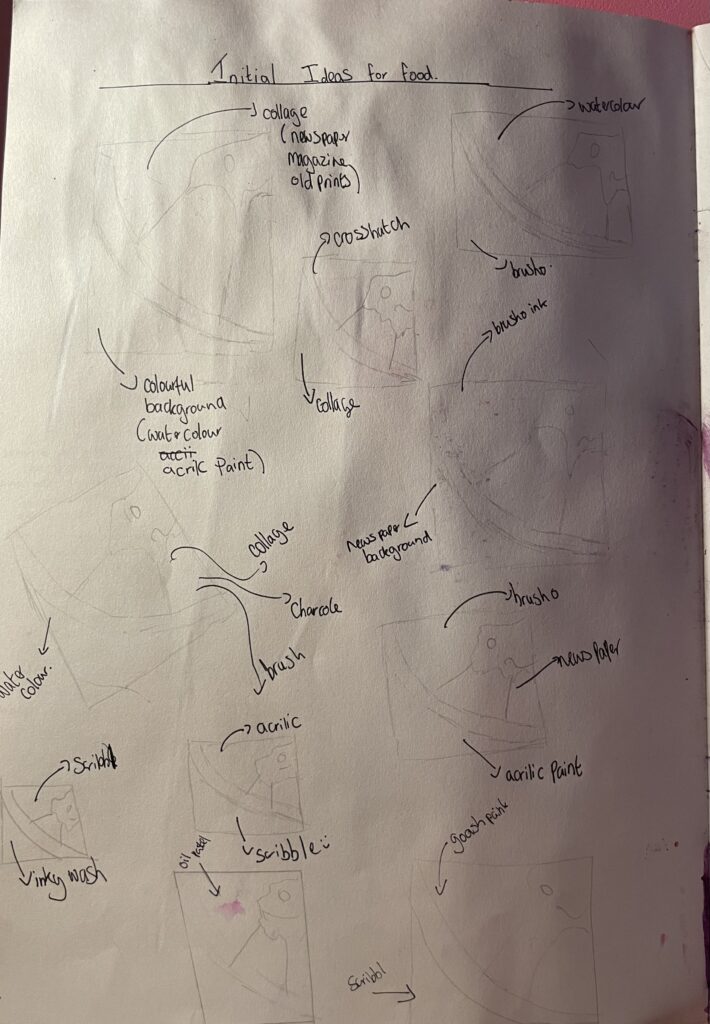 Initial Ideas for food.
collage
(newspaper
magazine
old prints)
watercolour
brusho.
crosshatch
collage
brusho ink
newspaper
background
colourful
background
(watercolour
accii
acrilc Paint)
collage
Charcole
brush
water
colour.
brusho
newspaper
acrilic paint
scribbl
inky wash
acrilic
scribble
oil
pastel
goash paint
Scribbl